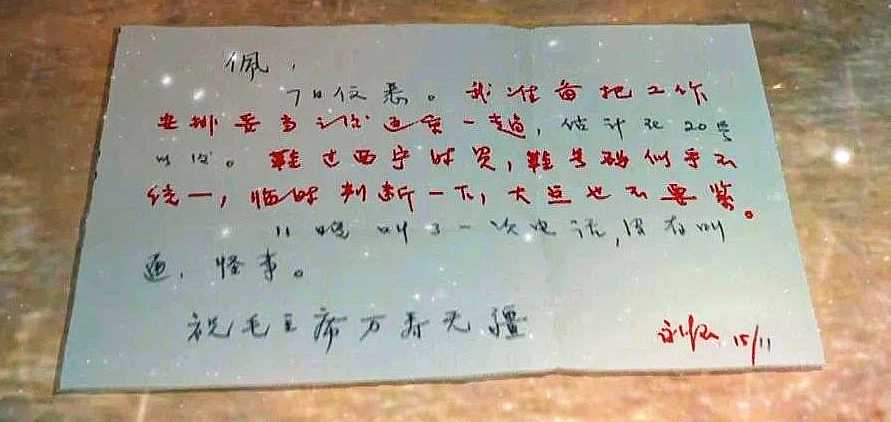 佩，
7日信悉。我准备把工作
安排妥当后返京一趟，估计在20号
以后。鞋过西宁时买，鞋号码似乎不
统一，临时判断一下，大点也不要紧。
11晚叫了一次电话，没有叫
通，怪事。
祝毛主席万寿无疆
15/11